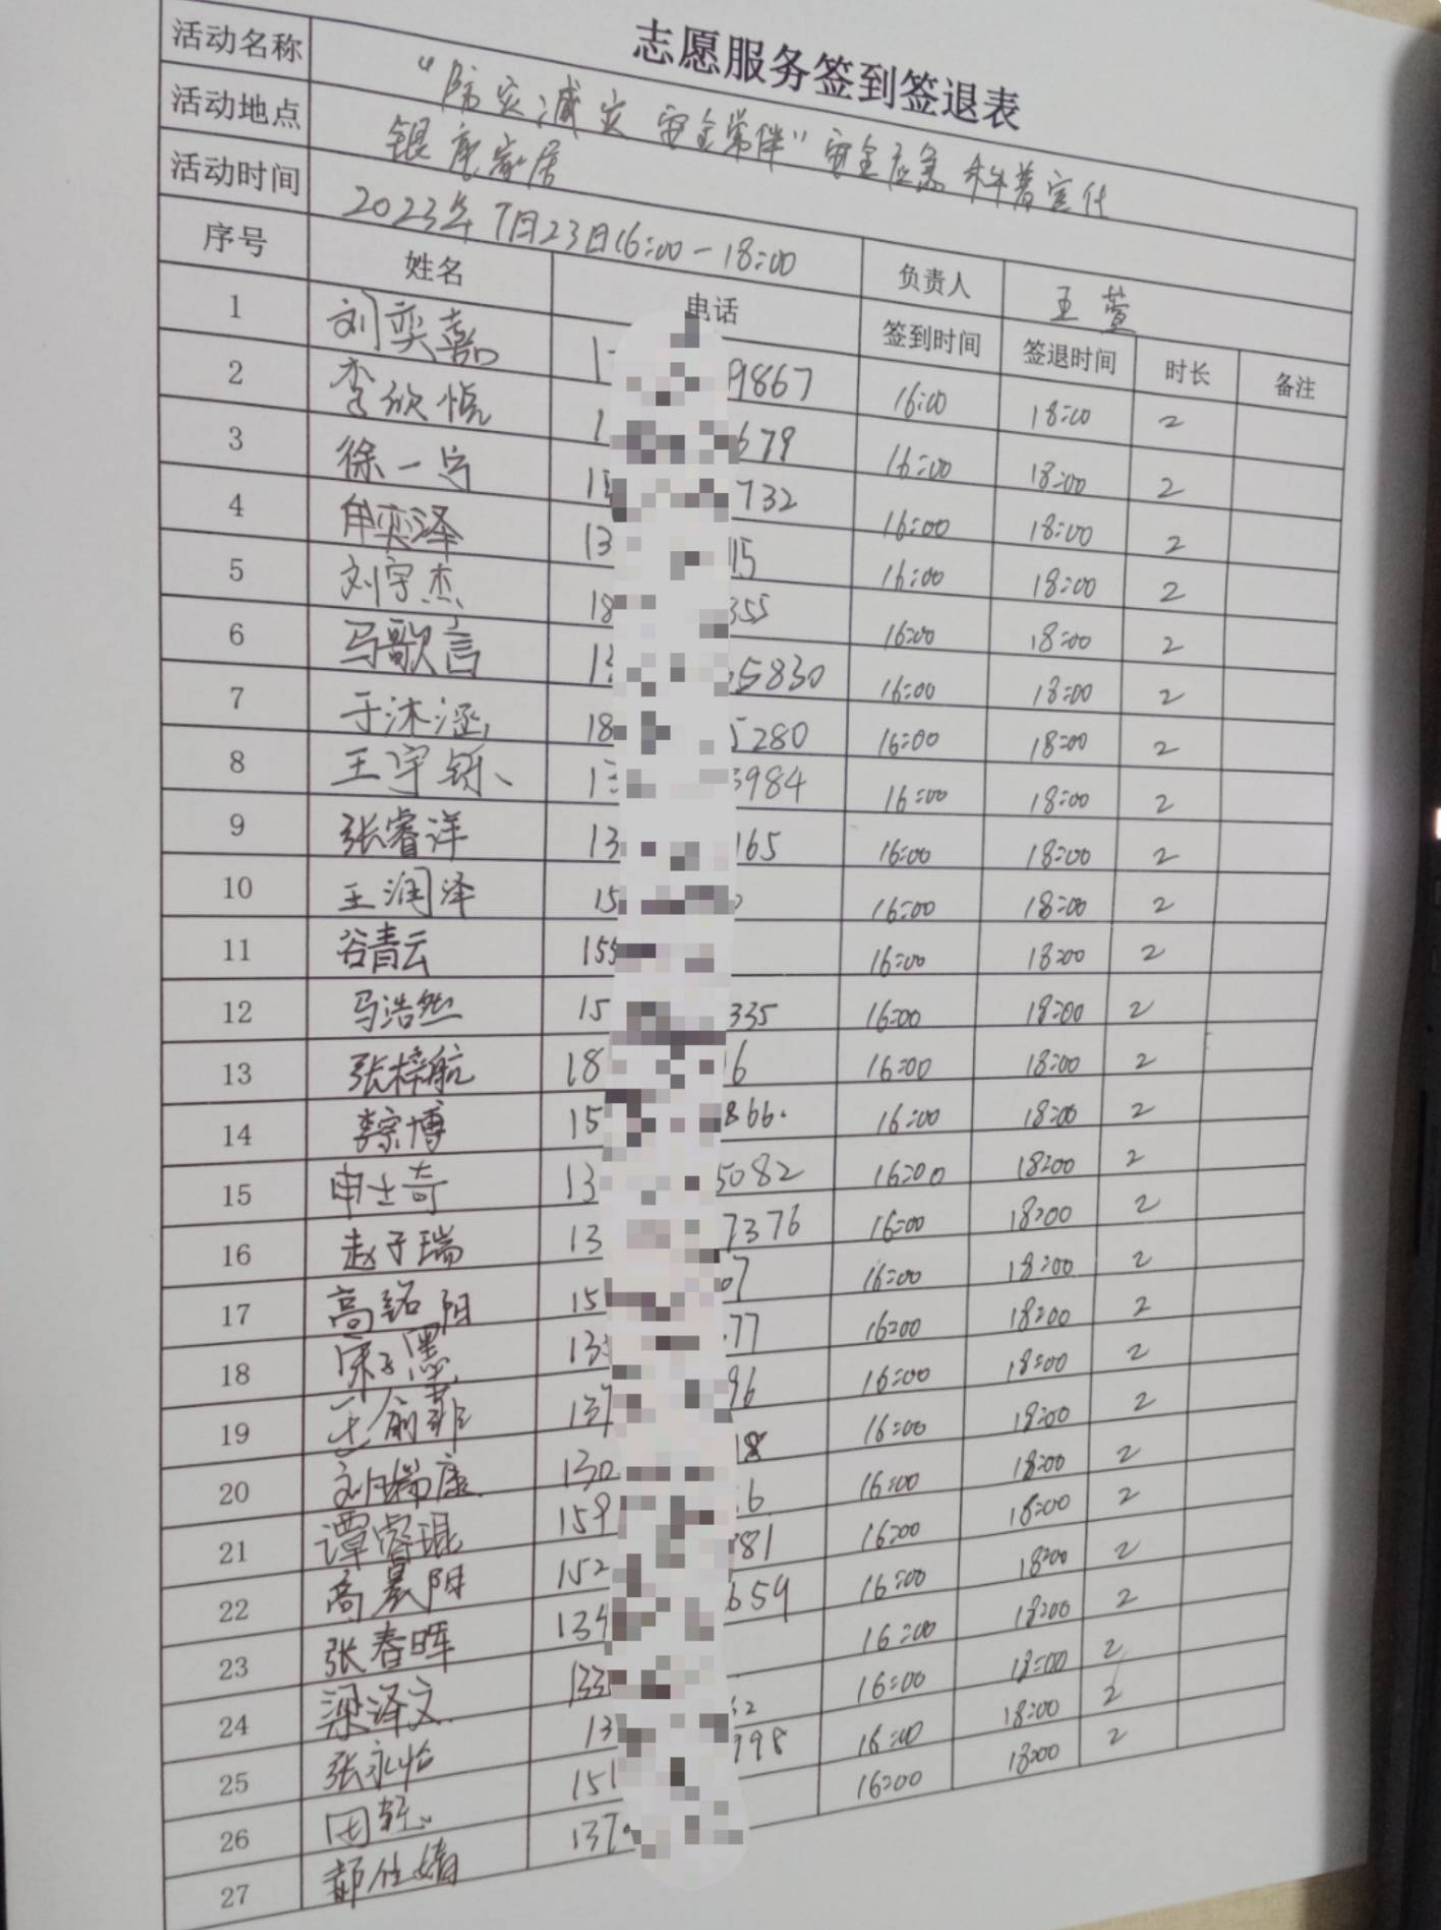 志愿服务签到签退表
活动名称 “防灾减灾 安全常伴”安全应急科普宣传
活动地点 银座家居
活动时间 2023年7月23日16:00-18:00 负责人 王萱
序号 姓名 电话 签到时间 签退时间 时长 备注
1 刘奕嘉 1 9867 16:00 18:00 2
2 李欣悦 1 679 16:00 18:00 2
3 徐一宁 1 732 16:00 18:00 2
4 奕泽 13 15 16:00 18:00 2
5 刘宇杰 18 355 16:00 18:00 2
6 马歌言 13 5830 16:00 18:00 2
7 于沐涵 18 5280 16:00 18:00 2
8 王宇铄 1 3984 16:00 18:00 2
9 张睿洋 13 165 16:00 18:00 2
10 王润泽 15 16:00 18:00 2
11 谷青云 155 16:00 18:00 2
12 马浩然 15 335 16:00 18:00 2
13 张梓航 18 6 16:00 18:00 2
14 李宗博 15 866. 16:00 18:00 2
15 申士奇 13 5082 16:00 18:00 2
16 赵子瑞 13 7376 16:00 18:00 2
17 高铭阳 15 07 16:00 18:00 2
18 13 77 16:00 18:00 2
19 137 96 16:00 18:00 2
20 刘瑞康 130 18 16:00 18:00 2
21 谭睿琨 159 6 16:00 18:00 2
22 高晨阳 152 381 16:00 18:00 2
23 张春晖 134 659 16:00 18:00 2
24 梁泽文 133 16:00 18:00 2
25 张永怡 13 52 16:00 18:00 2
26 田 151 998 16:00 18:00 2
27 郝仕婧 137 16:00 18:00 2